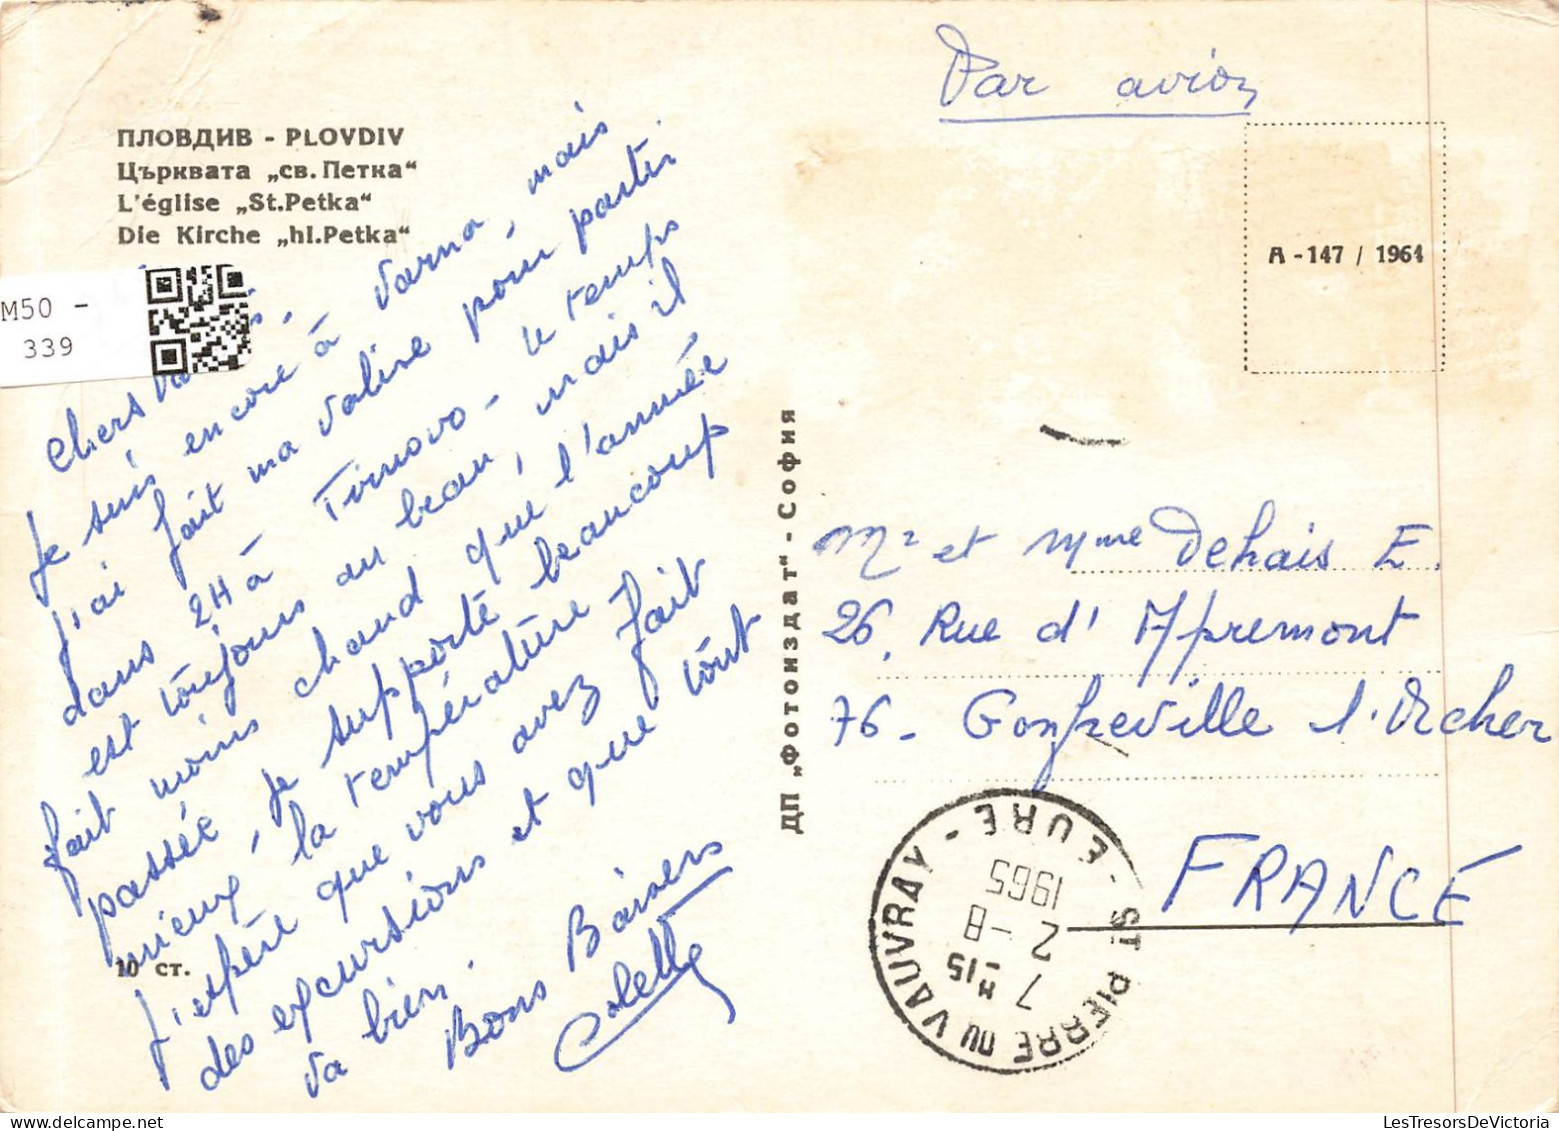 Par avion
ПЛОВДИВ - PLOVDIV
Църквата „св. Петка“
L'église „St. Petka“
Die Kirche „hl. Petka“
M50 -
339
Chers
Je suis encore à Varna, mais
j'ai fait ma valise pour partir
dans 2H à Tirnovo - le temps
est toujours au beau, mais il
fait moins chaud que l'année
passée, je supporte beaucoup
mieux la température
J'espère que vous avez fait
des excursions et que tout
va bien.
Bons Baisers
Colette
10 ст.
ДП „Фотоиздат“ - София
A - 147 / 1964
Mr et Mme Dehais E.
26, Rue d'Apremont
76 - Gonfreville l'Orcher
FRANCE
ST PIERRE DU VAUVRAY - EURE -
7 H 15
2 - 8
1965
LesTresorsDeVictoria.com